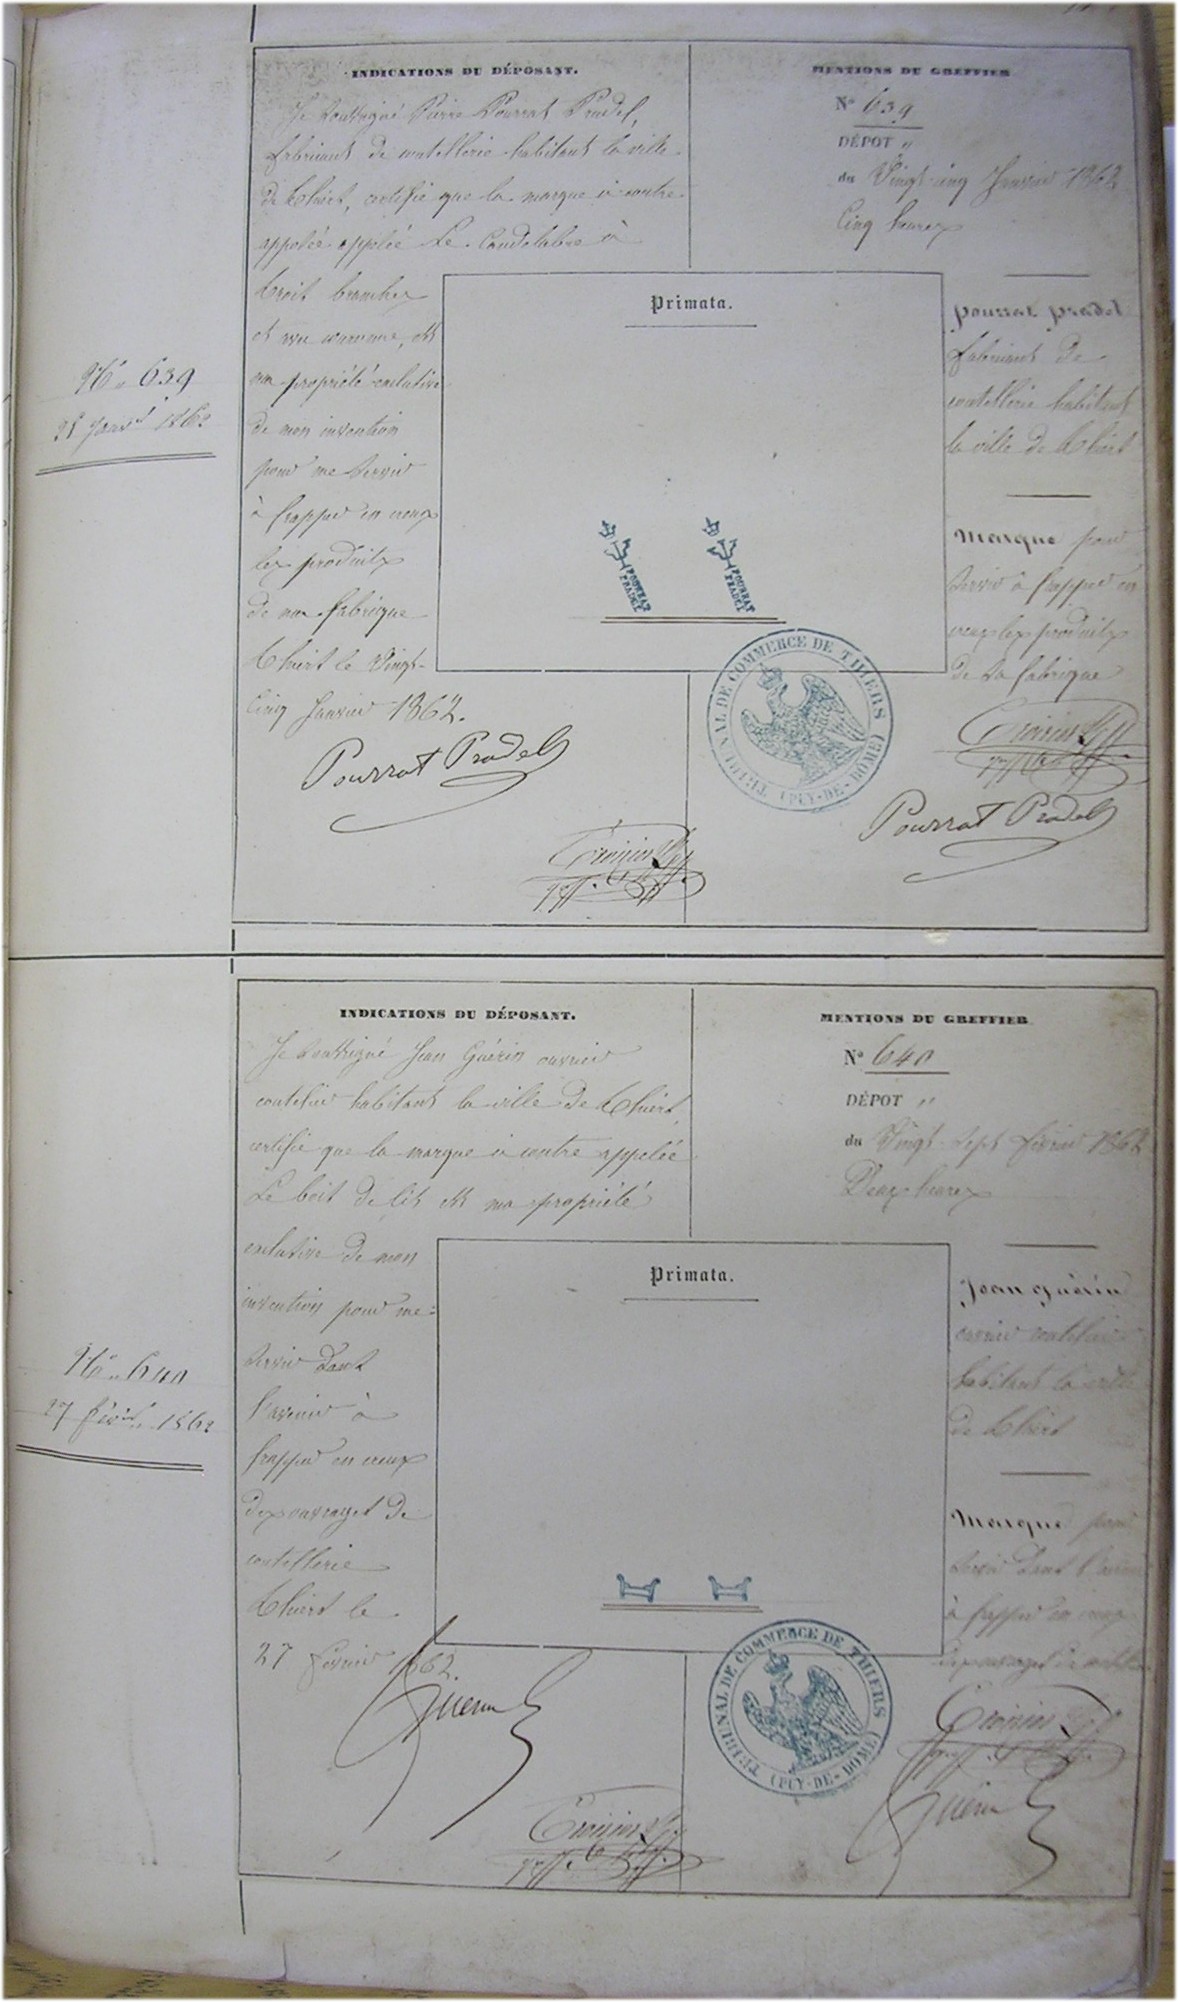 N° 639
25 Janv.er 1862
INDICATIONS DU DÉPOSANT.
Je soussigné Pierre Pourrat Pradel,
fabricant de coutellerie habitant la ville
de Thiers, certifie que la marque ci contre
apposée appelée Le Candelabre à
trois branches
et une couronne, est
ma propriété exclusive
de mon invention
pour me servir
à frapper en creux
les produits
de ma fabrique
Thiers le Vingt-
Cinq Janvier 1862.
Pourrat Pradel
MENTIONS DU GREFFIER
N° 639
DÉPOT "
du Vingt-cinq Janvier 1862
Cinq heures
pourrat pradel
fabricant de
coutellerie habitant
la ville de Thiers
Marque pour
servir à frapper en
creux les produits
de sa fabrique
Pourrat Pradel
Primata.
POURRAT
PRADEL
POURRAT
PRADEL
TRIBUNAL DE COMMERCE DE THIERS
(PUY-DE-DOME)
N° 640
27 févri. 1862
INDICATIONS DU DÉPOSANT.
Je soussigné Jean Guérin ouvrier
coutelier habitant la ville de Thiers,
certifie que la marque ci contre appelée
Le bois de lit est ma propriété
exclusive de mon
invention pour me
servir dans
l'avenir à
frapper en creux
des ouvrages de
coutellerie
Thiers le
27 février 1862.
Guerin
MENTIONS DU GREFFIER
N° 640
DÉPOT "
du Vingt-sept février 1862
Deux heures
Jean Guérin
ouvrier coutelier
habitant la ville
de Thiers
Marque pour
servir dans l'avenir
à frapper en creux
des ouvrages de
Guerin
Primata.
TRIBUNAL DE COMMERCE DE THIERS
(PUY-DE-DOME)